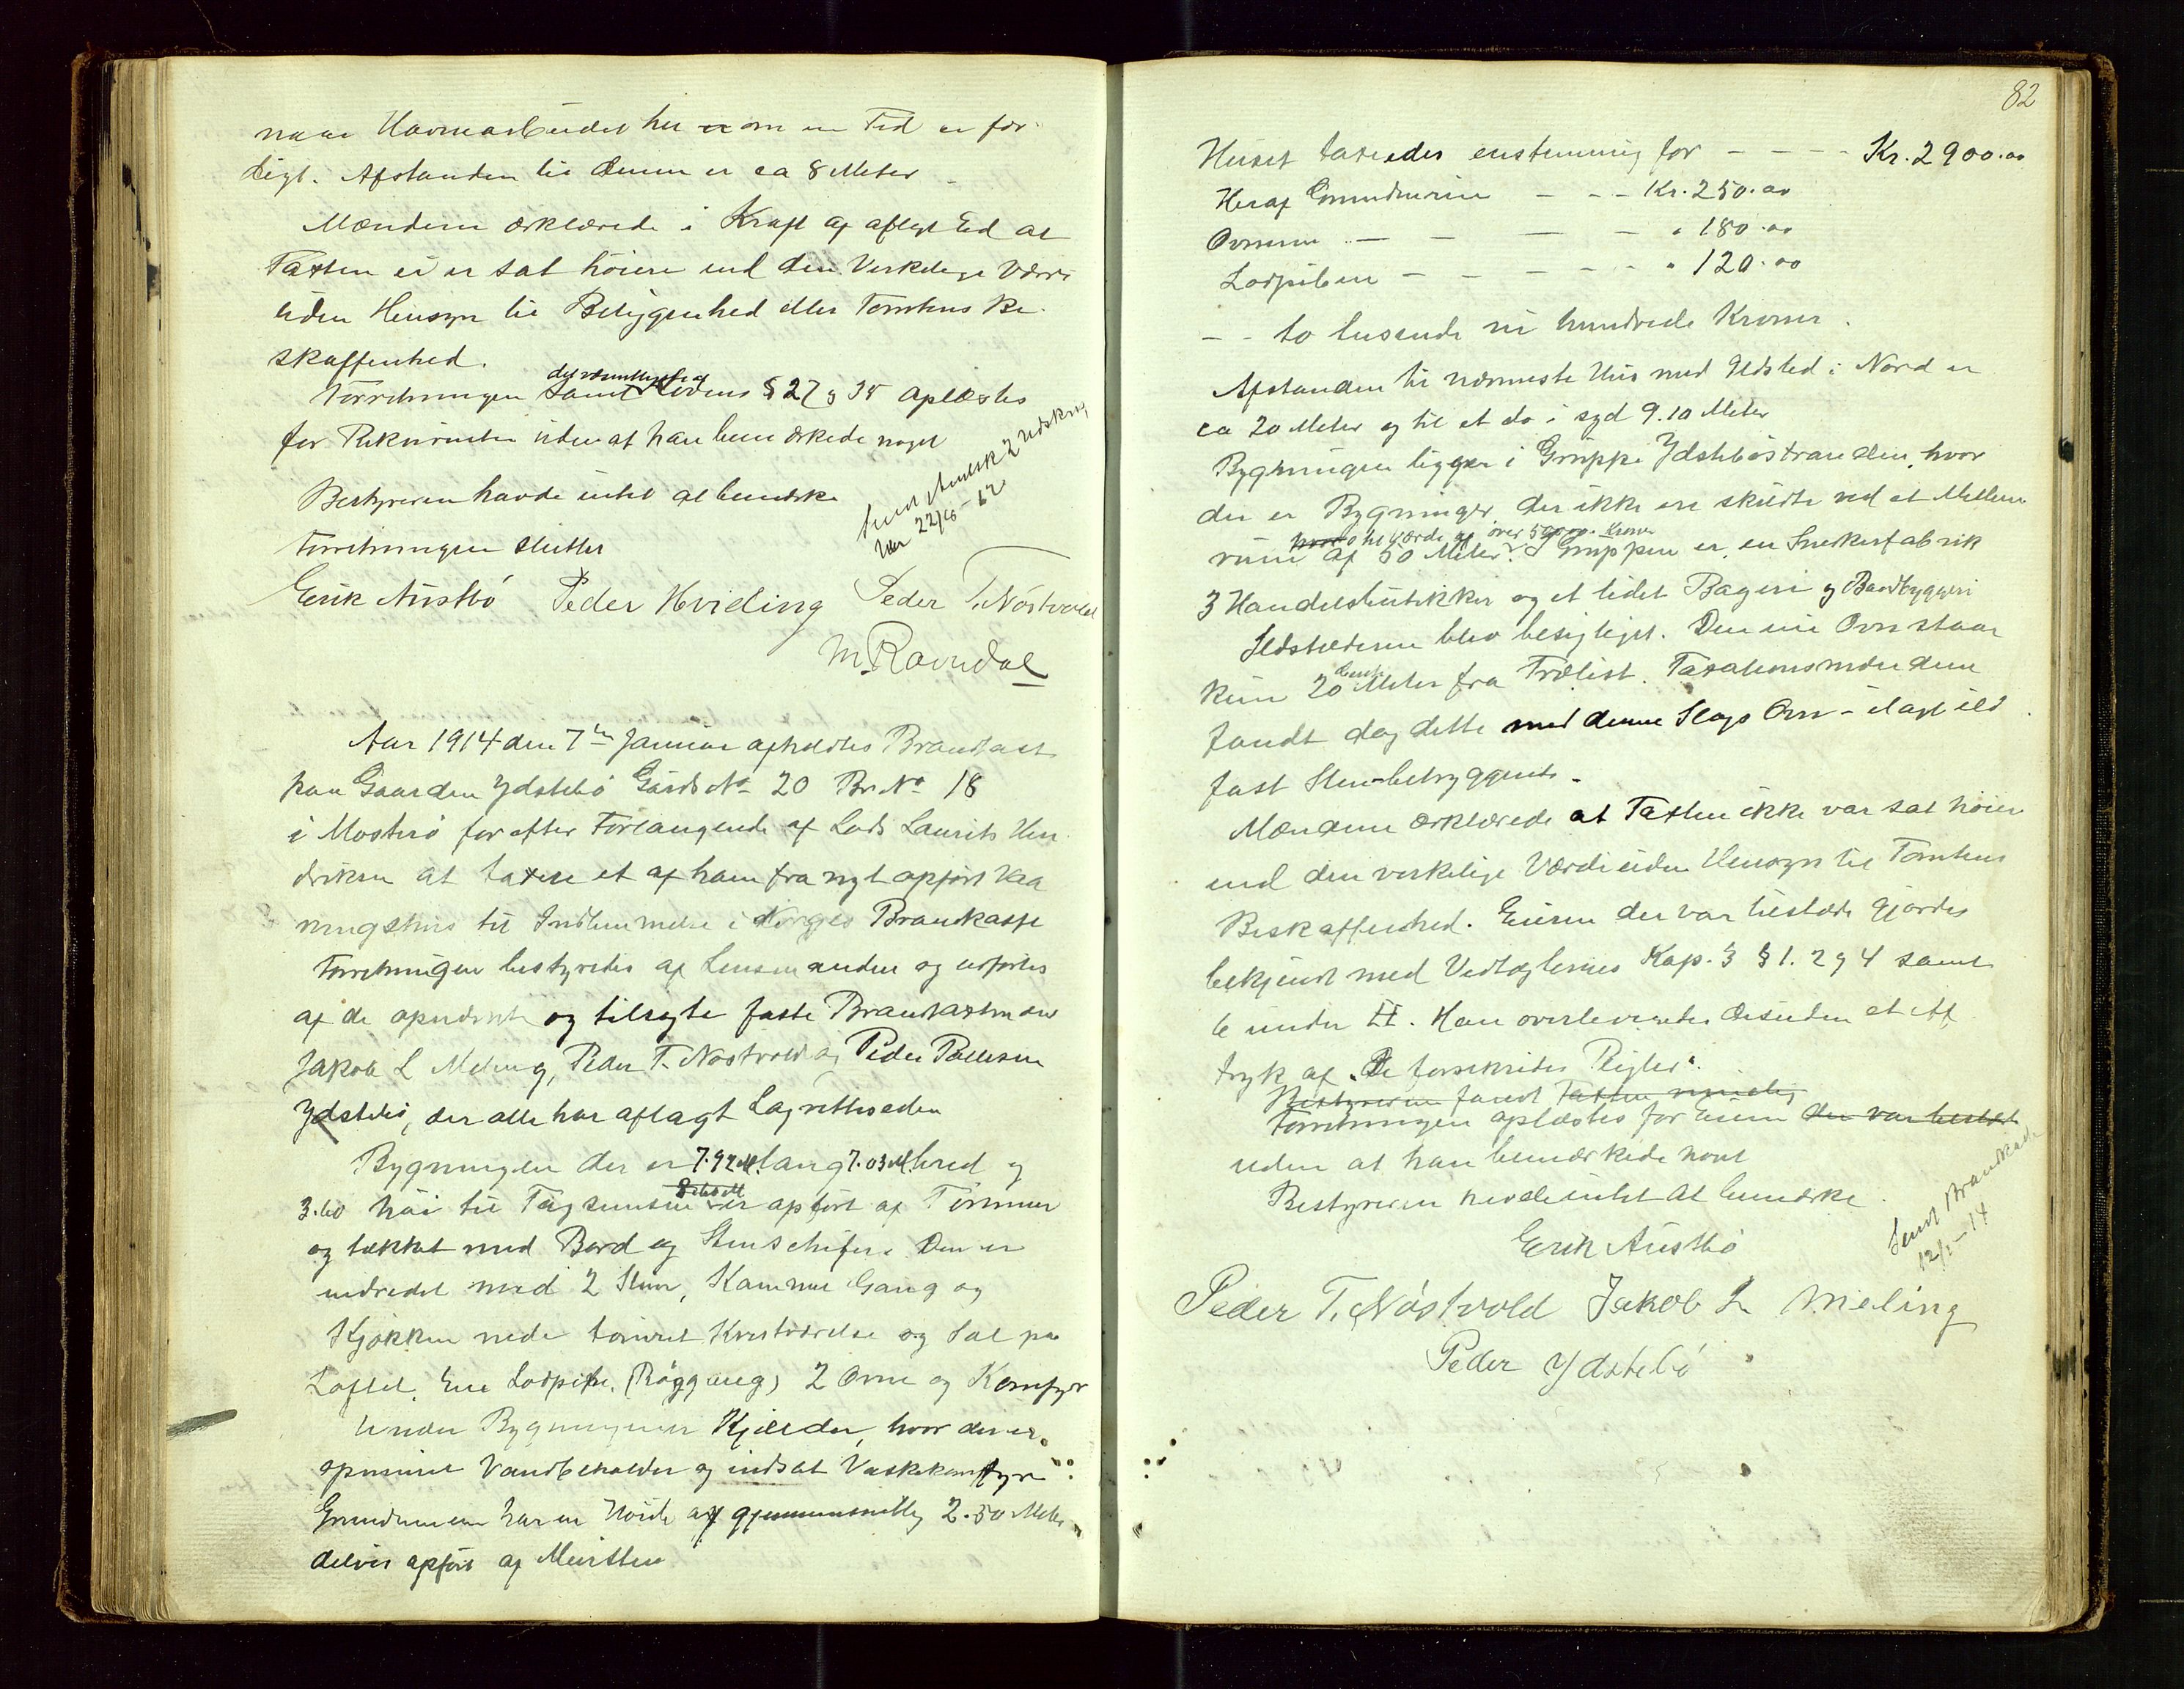 naar Havnearbeidet her om en Tid er fær-
digt. Afstanden til denne er ca 8 Meter
Mændene erklærede i Kraft af aflagt Ed at
Taxten ei er sat høiere end den Virkelige Værdi
uden Hensyn til Beliggenhed eller Tomtens Be-
skaffenhed.
Forretningen samt Lovens § 27 og 35 oplæstes
for Rekvirenten uden at han bemærkede noget
Bestyreren havde intet at bemærke
Forretningen sluttet
Sendt 2 Udskrig
22/6-12
Erik Austbö Peder Hviding Peder T. Nöstvold
M. Ravndal
Aar 1914 den 7de Januar afholdtes Brandtaxt
paa Gaarden Ydstebö Gards No 20 Br. No 18
i Mosterö for efter Forlangende af Lods Laurits Hen-
driksen at taxere et af ham fra nyt opført Vaa
ningshus til Indlemmelse i Norges Brankasse
Forretningen bestyredes af Lensmanden og udførtes
af de opnævnte og tilsagte faste Brandtaxtmænd
Jakob L Meling, Peder T. Nöstvold og Peder Pallesen
Ydstebö, der alle har aflagt Lagretteseden
Bygningen der er 7.92 M lang 7.03 M bred og
3.60 høi til Tagskimsen er opført af Tømmer
og tækket med Bord og Stenskifer. Den er
indredet med 2 Stuer, Kammer Gang og
Kjøkken nede tømret Kvistværelse og Sal paa
Loftet. En Lodpibe, (Røggang) 2 Ovne og Komfyr
Under Bygningen er Kjelder, hvor der er
opmuret Vandbeholder og indsat Vaskekomfyr
Grundmuren har en Høide af gjennemsnitlig 2.50 Meter
delvis opført af Mursten
82
Huset taxeredes enstemmig for - - - - Kr. 2900.00
Heraf Grundmuren - - - Kr. 250.00
Ovnene - - - - " 180.00
Lodpiben - - - - - " 120.00
- - to tusende ni hundrede Kroner.
Afstanden til nærmeste Hus med Ildsted i Nord er
ca 20 Meter og til et do i syd 9.10 Meter
Bygningen ligger i Gruppe Ydstebøstranden, hvor
der er Bygninger der ikke ere skildte ved et Mellem-
til Værdi af over 50000. Kroner
rum af 50 Meter. I Gruppen er en Snekkerfabrik
3 Handelsbutikker og et lidet Bageri og Baadbyggeri
Ildstederne blev besigtiget. Den ene Ovn staar
kun 20 Meter fra Trælist. Taxationsmændene
fandt dog dette med denne Slags Ovn - ilagt ild
fast Sten - betryggende.
Mændene erklærede at Taxten ikke var sat høiere
end den verkelige Værdi uden Hensyn til Tomtens
Beskaffenhed. Eieren der var tilstede gjordes
bekjendt med Vedtægternes Kap. 3 § 1. 2 og 4 samt
6 under II. Han overleveredes desuden et Af
tryk af "De forsikredes Pligter".
Bestyreren fandt Taxten rimelig
Forretningen oplæstes for Eieren der var tilstede
uden at han bemærkede noget
Bestyreren havde intet at bemærke.
Sendt Brandkasse
12/1-14
Erik Austbö
Peder T. Nöstvold Jakob L Meling
Peder Ydstebö